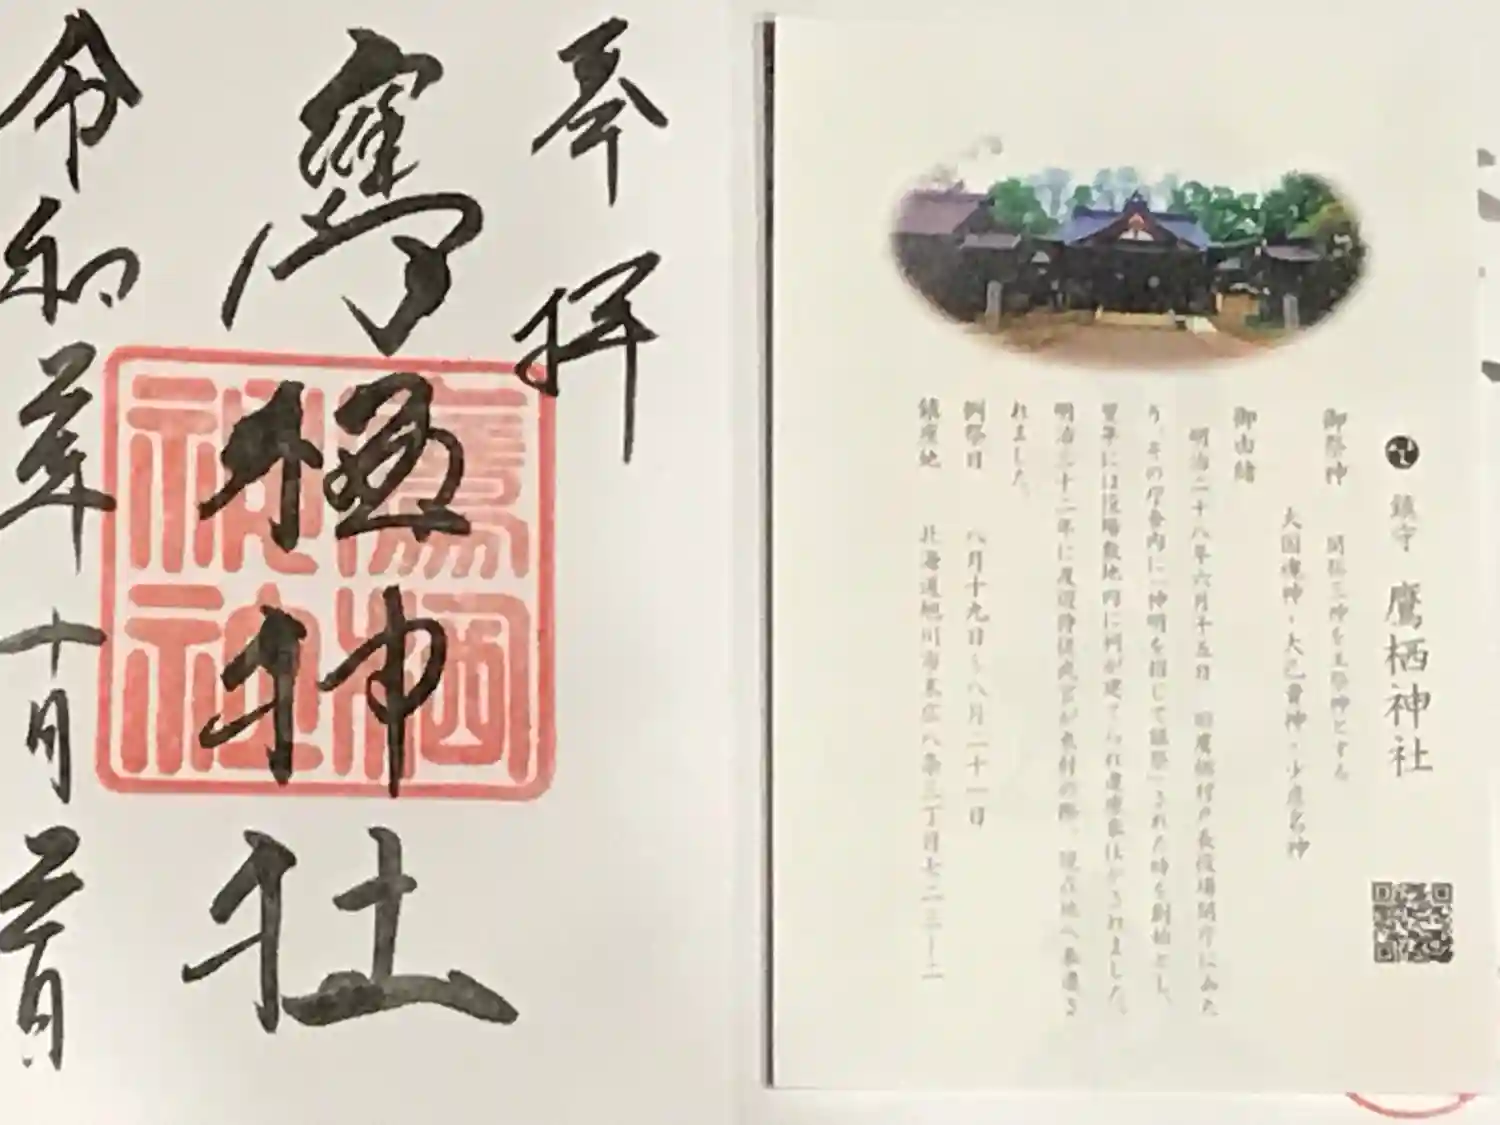 奉拝
鷹栖神社
鷹栖神社
令和二年十月二日
鎮守 鷹栖神社
御祭神 開拓三神を主祭神とする
大国魂神・大己貴神・少彦名神
御由緒
明治二十八年六月十五日 旧鷹栖村戸長役場開庁にあた
り、その庁舎内に「神明を招じて鎮祭」された時を創始とし、
翌年には役場敷地内に祠が建てられ遷座奉仕がされました。
明治三十二年に度辺
れました。
例祭日 八月十九日~八月二十一日
鎮座地 北海道旭川市末広八条三丁目七二三ー二